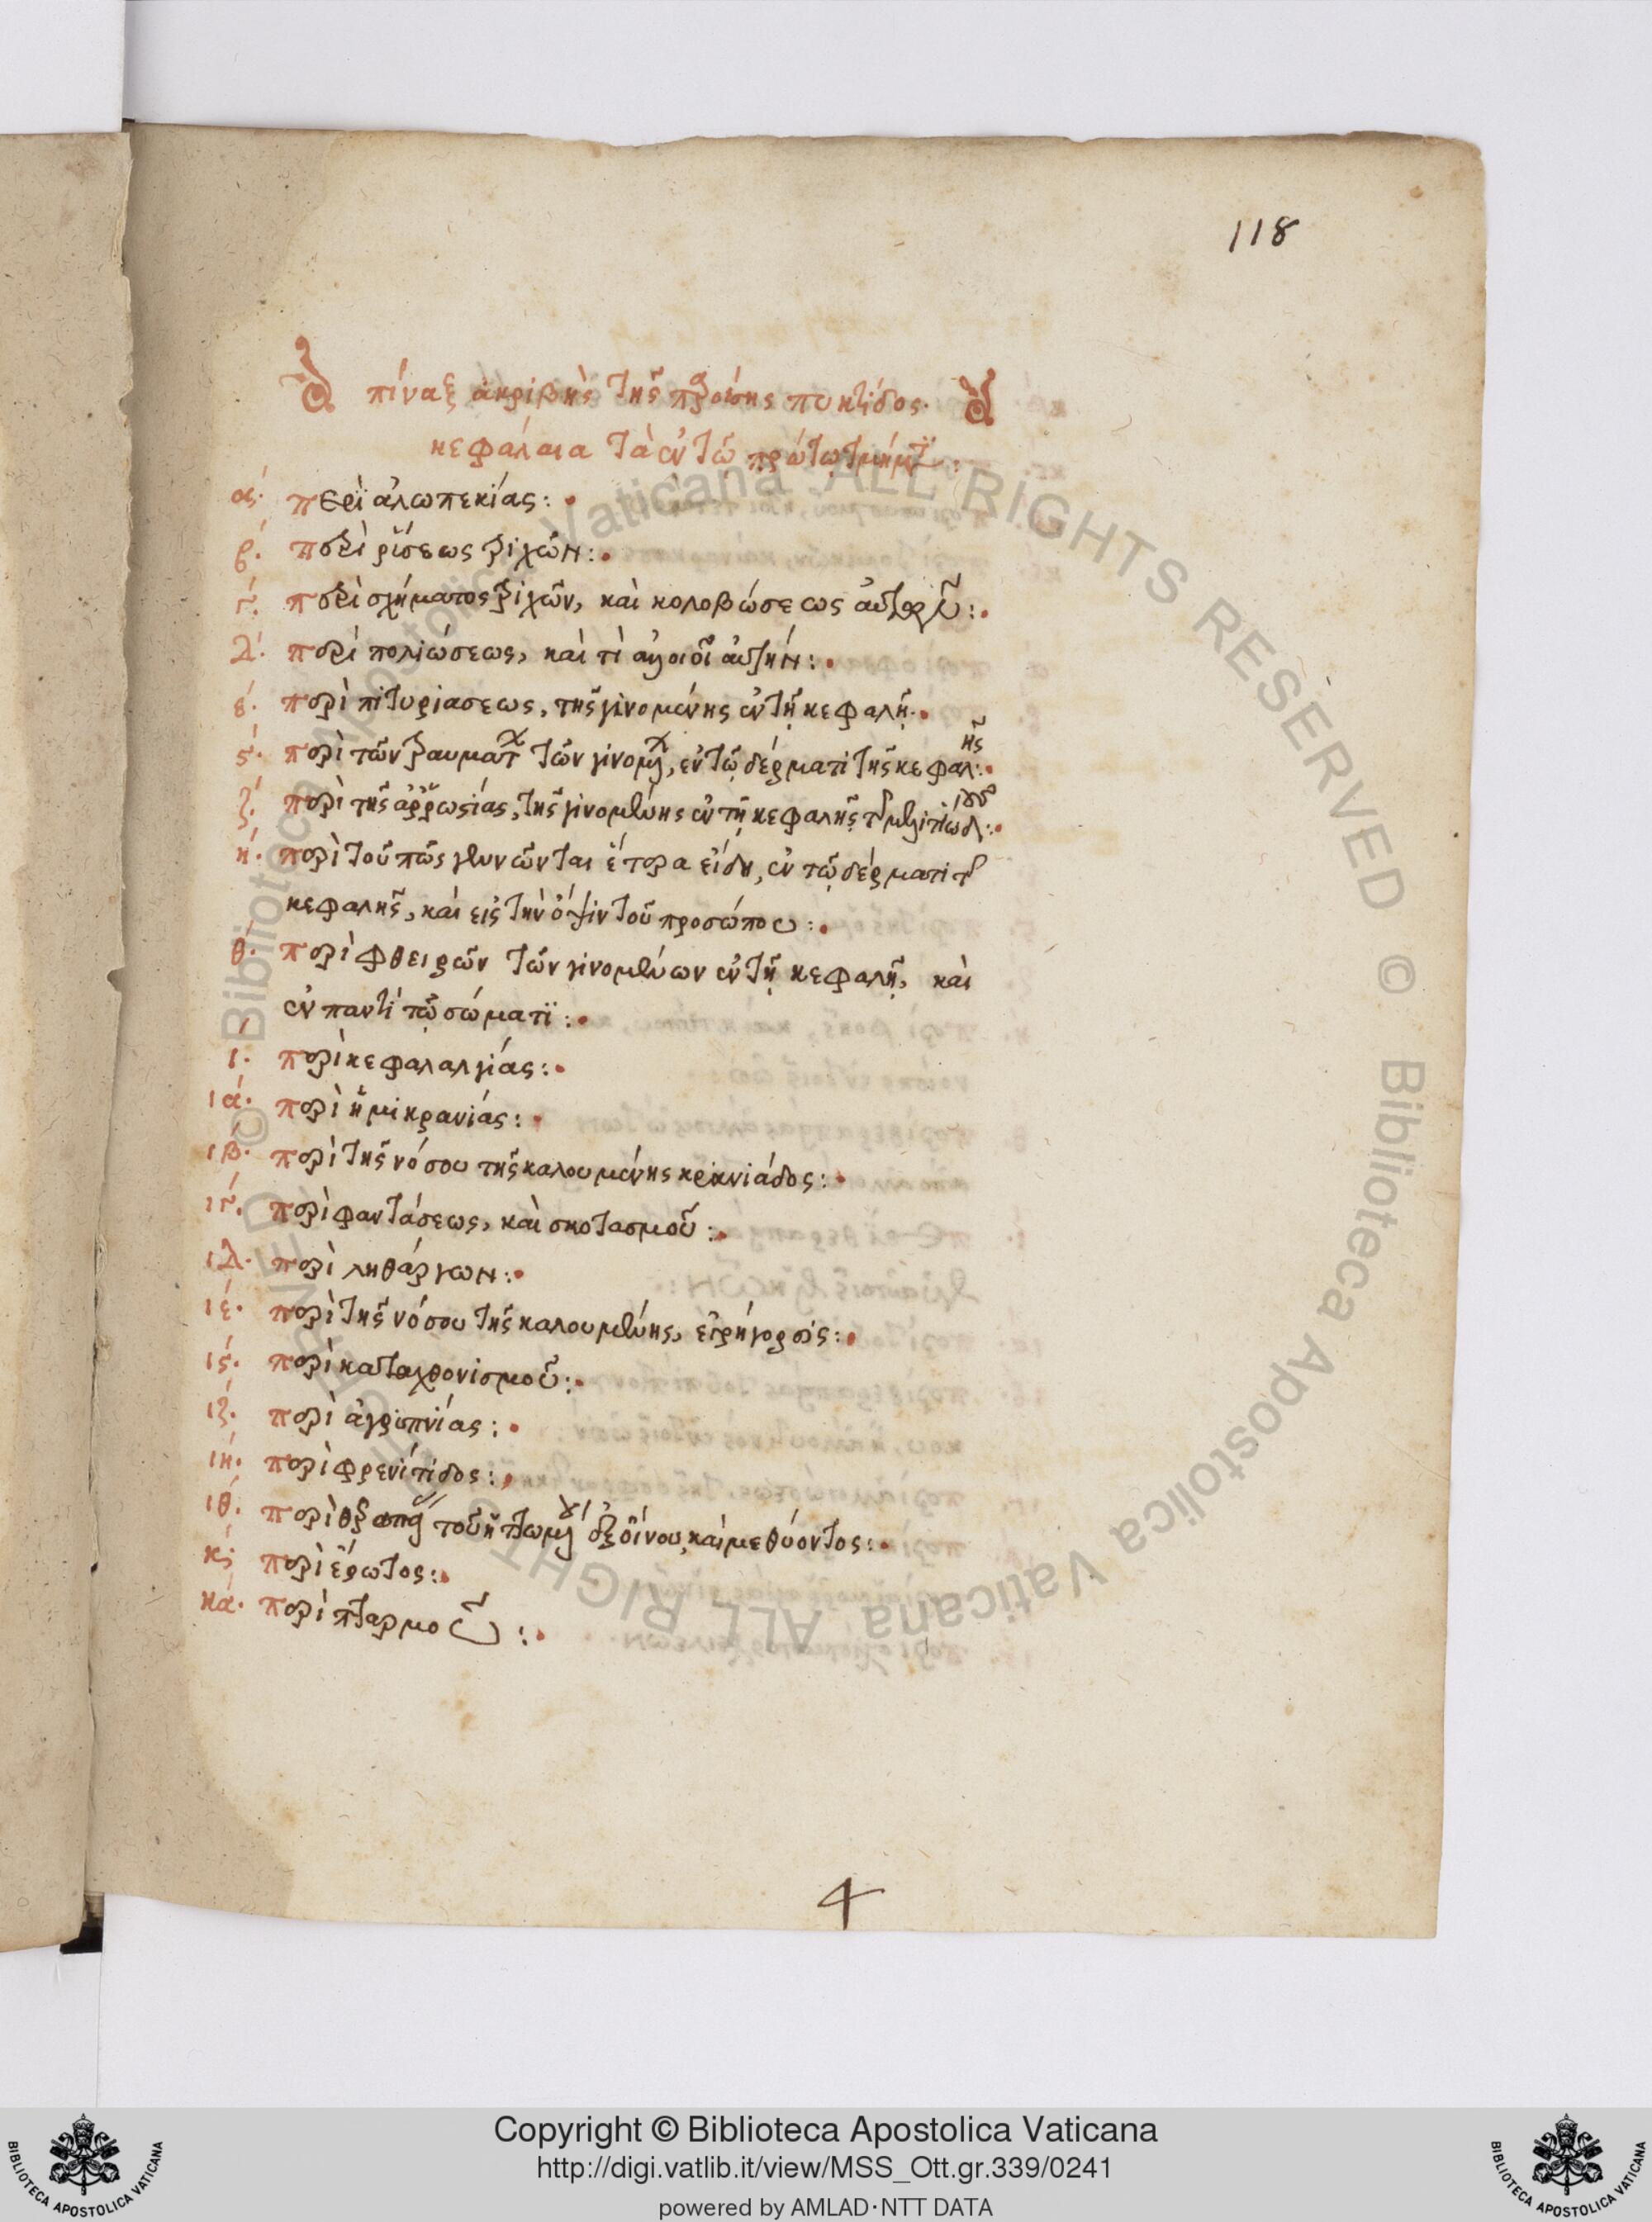 118
πίναξ ἀκριβὴς τῆς παρούσης πυκτίδος.
κεφάλαια τὰ ἐν τῶ πρώτω τμήματι:
α΄. περὶ ἀλωπεκίας:
β΄. περὶ ῥύσεως τριχῶν:
γ΄. περὶ σχήματος τριχῶν, καὶ κολοβώσεως αὐτῶν:
δ΄. περὶ πολιώσεως, καὶ τί ποιεῖ αὐτήν:
ε΄. περὶ πιτυριασεως, τῆς γινομένης ἐν τῇ κεφαλῇ.
ς΄. περὶ τῶν τραυμάτων τῶν γινομένων, ἐν τῷ δέρματι τῆς κεφαλῆς:
ζ΄. περὶ τῆς ἀῤῥωστίας, τῆς γινομένης ἐν τῇ κεφαλῇ τῆς μελιτιώδους:
η΄. περὶ τοῦ πῶς γεννῶνται ἕτερα εἴδη, ἐν τῷ δέρματι τῆς
κεφαλῆς, καὶ εἰς τὴν ὄψιν τοῦ προσώπου:
θ΄. περὶ φθειρῶν τῶν γινομένων ἐν τῇ κεφαλῇ, καὶ
ἐν παντὶ τῷ σώματι:
ι΄. περὶ κεφαλαλγίας:
ια΄. περὶ ἡμικρανίας:
ιβ΄. περὶ τῆς νόσου τῆς καλουμένης κρανιάδος:
ιγ΄. περὶ φαντάσεως, καὶ σκοτασμοῦ:
ιδ΄. περὶ ληθάργων:
ιε΄. περὶ τῆς νόσου τῆς καλουμένης, εἰρήγορσις:
ις΄. περὶ καταχθονισμοῦ:
ιζ΄. περὶ ἀγρυπνίας:
ιη΄. περὶ φρενίτιδος:
ιθ΄. περὶ θεραπείας τοῦ ἡττωμένου ἐξ οἴνου, καὶ μεθύοντος:
κ΄. περὶ ἔρωτος:
κα΄. περὶ πταρμοῦ:
4
© Biblioteca Apostolica Vaticana ALL RIGHTS RESERVED © Biblioteca Apostolica Vaticana ALL RIGHTS RESERVED
Copyright © Biblioteca Apostolica Vaticana
http://digi.vatlib.it/view/MSS_Ott.gr.339/0241
powered by AMLAD·NTT DATA
BIBLIOTECA APOSTOLICA VATICANA
BIBLIOTECA APOSTOLICA VATICANA